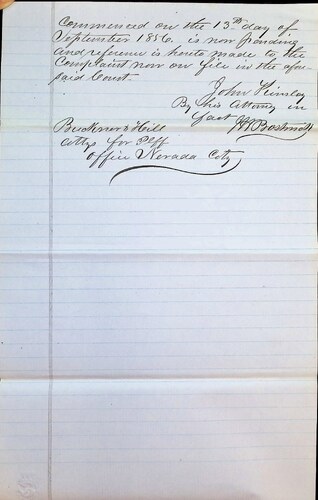 commenced on the 13th day of
September 1856. is now pending
and reference is hereto made to the
Complaint now on file in the afore-
said Court.
John Kinsley
By his Attorney in
fact
Buckner & Hill
attys for Plff
office Nevada City